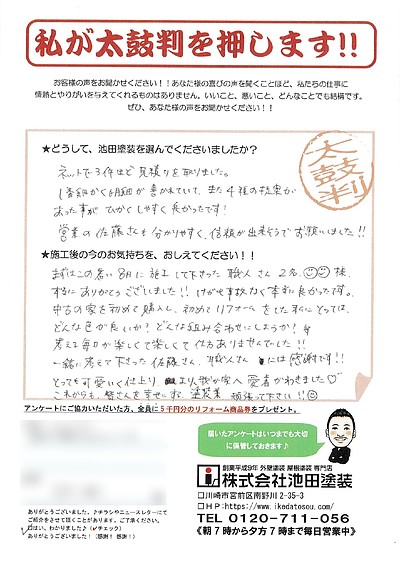 私が太鼓判を押します!!
お客様の声をお聞かせください！！あなた様の喜びの声を聞くことほど、私たちの仕事に
情熱とやりがいを与えてくれるものはありません。いいこと、悪いこと、どんなことでも結構です。
ぜひ、あなた様の声をお聞かせください！！
★どうして、池田塗装を選んでくださいましたか？
太鼓判
ネットで3件ほど見積りを取りました。
1番細かく明細が書かれていて、また4種の提案が
あった事がひかくしやすく良かったです!
営業の佐藤さんも分かりやすく、信頼が出来そうでお願いしました!!
★施工後の今のお気持ちを、おしえてください！！
まずはこの暑い8月に施工して下さった職人さん2名 様、
本当にありがとうございました!! けがや事故なく本当に良かったです。
中古の家を初めて購入し、初めてリフォームをした私にとっては、
どんな色が良いか？どんな組み合わせにしようか！
考える毎日が楽しくて楽しくて仕方ありませんでした!!
一緒に考えて下さった佐藤さん、職人さんには感謝です!!
とっても可愛い仕上り より我が家へ愛着がわきました♡
これからも、皆さんを幸せにする塗装業 頑張って下さい!!
アンケートにご協力いただいた方、全員に5千円分のリフォーム商品券をプレゼント。
届いたアンケートはいつまでも大切
に保管しておきます♪
創業平成9年 外壁塗装 屋根塗装 専門店
株式会社池田塗装
□川崎市宮前区南野川 2-35-3
□HP:https://www.ikedatosou.com/
TEL 0120-711-056
《朝7時から夕方7時まで毎日営業中》
ありがとうございました。♪チラシやニュースレターにて
ご紹介をさせて頂くことがあります。ご了承ください。
□はい、わかりました♪（✔チェック）
ありがとうございました！（感謝！感謝！）